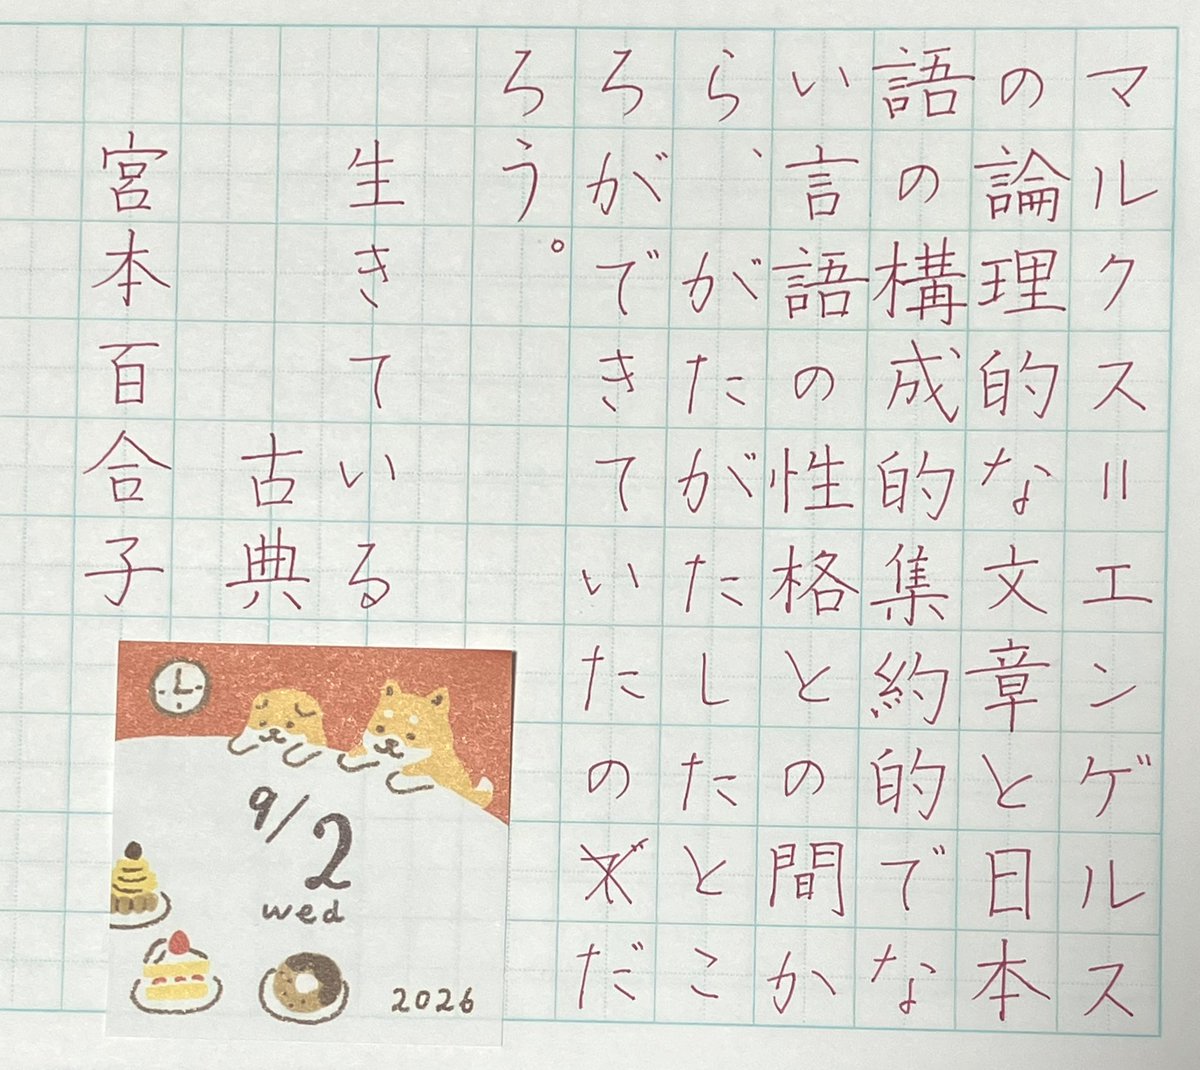 マルクス＝エンゲルス
の論理的な文章と日本
語の構成的集約的でな
い言語の性格との間か
ら、がたがたしたとこ
ろができていたのだ
ろう。
生きている
古典
宮本百合子
9/2
wed
2026